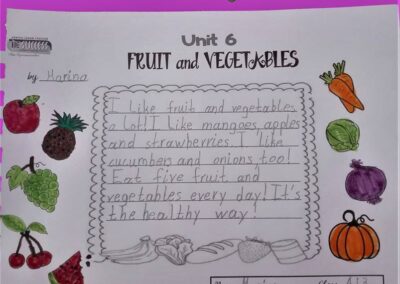 Unit 6
FRUIT and VEGETABLES
by Marina
I like fruit and vegetables
a lot! I like mangoes, apples
and strawberries. I like
cucumbers and onions, too!
Eat five fruit and
vegetables every day! It's
the healthy way!